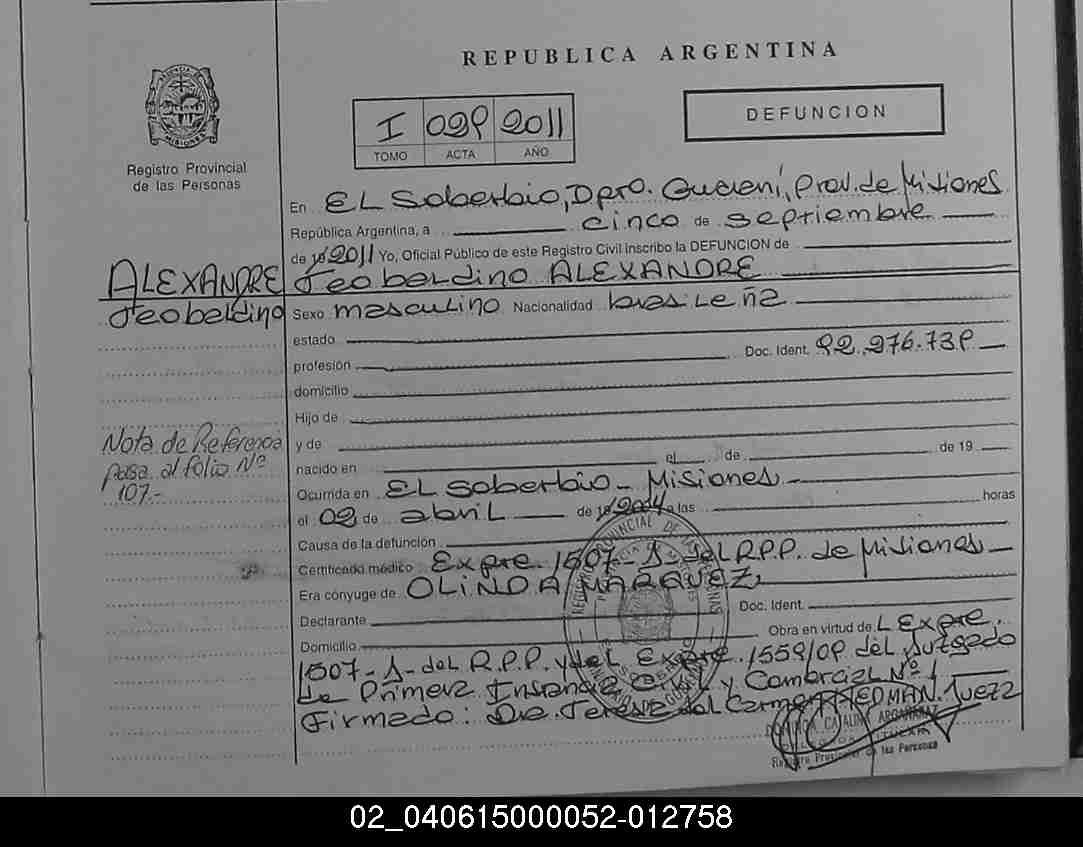 REPUBLICA ARGENTINA
PROVINCIA DE
MISIONES
Registro Provincial
de las Personas
I 029 2011
TOMO ACTA AÑO
DEFUNCION
En EL Soberbio, Dpto. Guaraní, Prov. de Misiones
República Argentina, a cinco de septiembre
de 2011 Yo, Oficial Público de este Registro Civil inscribo la DEFUNCION de
ALEXANDRE Teobaldino ALEXANDRE
Teobaldino
Sexo masculino Nacionalidad brasileña
estado
profesión Doc. Ident. 92.276.739
domicilio
Hijo de
Nota de Referencia
pasa al folio Nº
107.-
y de
nacido en el de de 19
Ocurrida en EL Soberbio - Misiones
el 02 de abril de 2004 a las horas
Causa de la defunción
Certificado médico Expte. 1507-A- del R.P.P. de Misiones
Era cónyuge de OLINDA MARQUEZ
Declarante Doc. Ident.
Domicilio Obra en virtud del Expte.
1507-A- del R.P.P. y del Expte. 1559/09 del Juzgado
de Primera Instancia Civil y Comercial Nº 1
Firmado: Dra. Teresa del Carmen HEDMAN. Jueza
Registro Provincial de las Personas
02_040615000052-012758